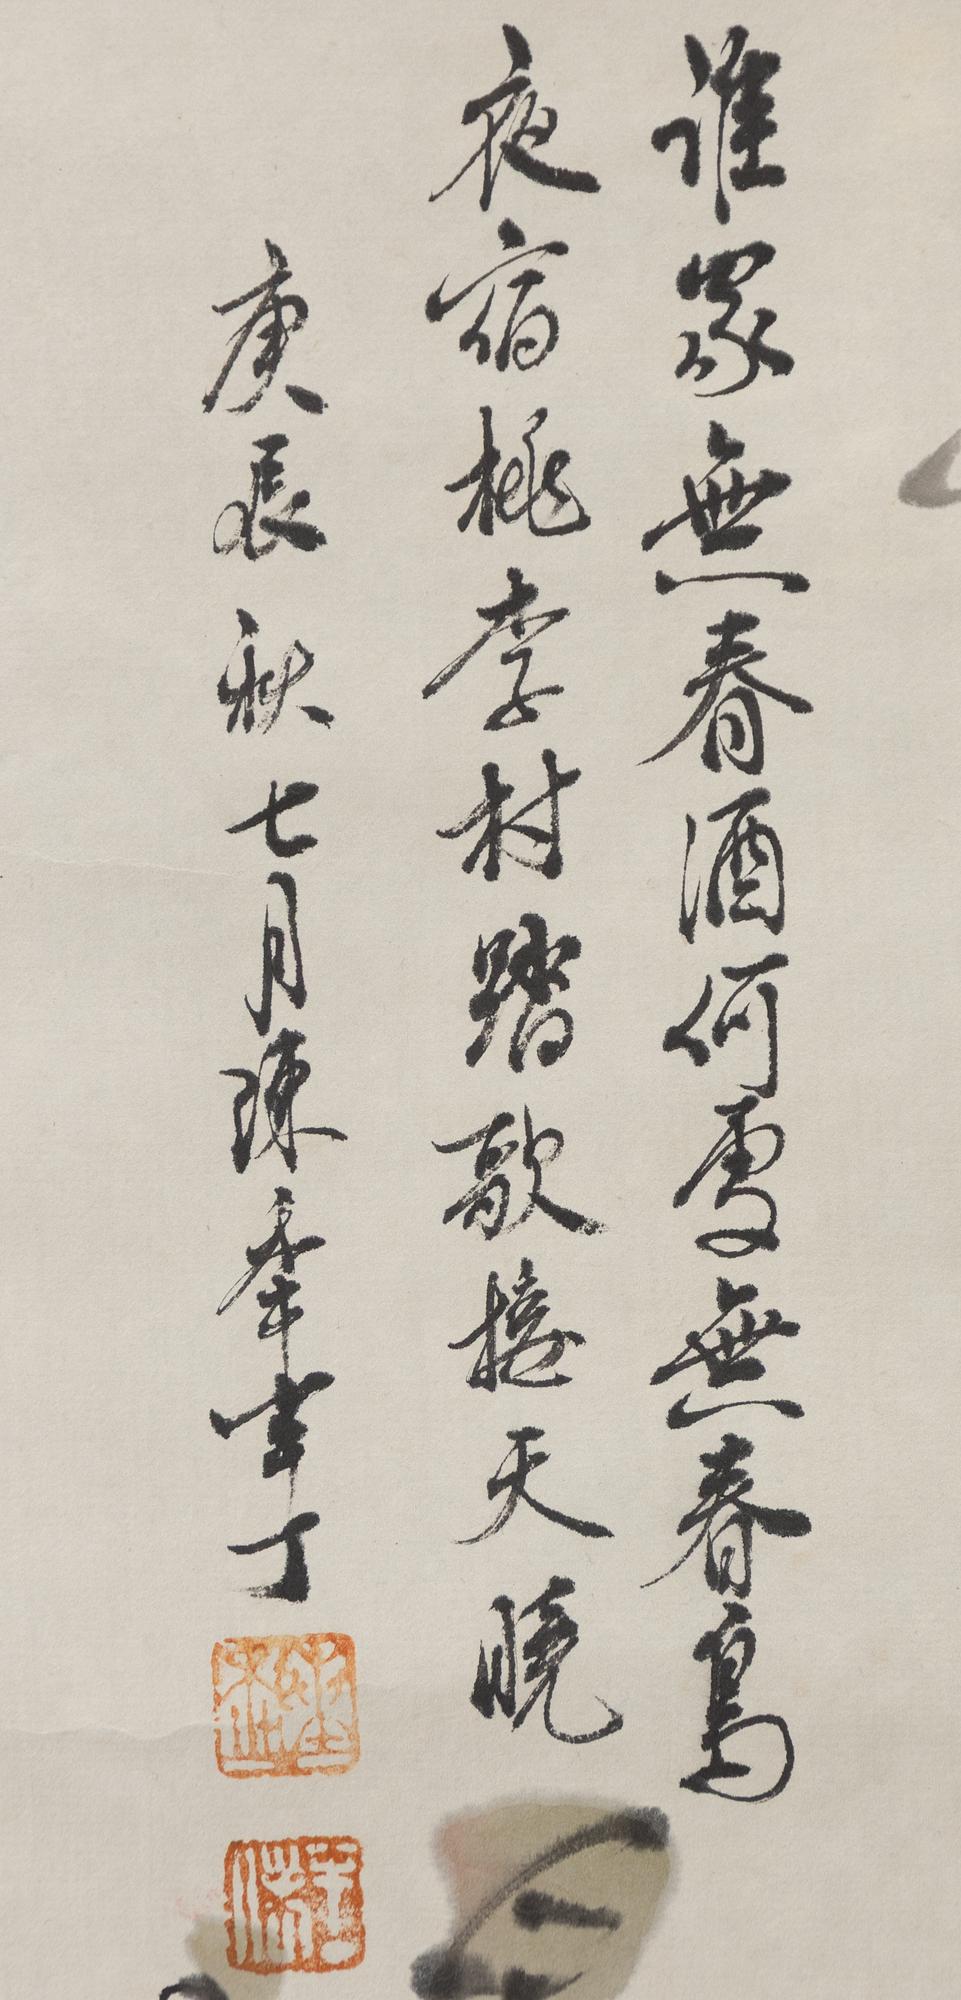 誰家無春酒何處無春鳥
夜宿桃李村踏歌接天曉
庚辰秋七月陳秊半丁